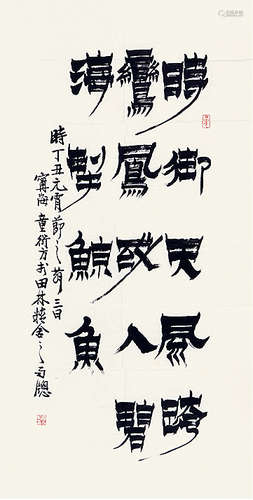 時御天風跨
鸞鳳或入碧
海掣鯨魚
時丁丑元宵節之前三日
寗海童衍方于田林舍之南牕